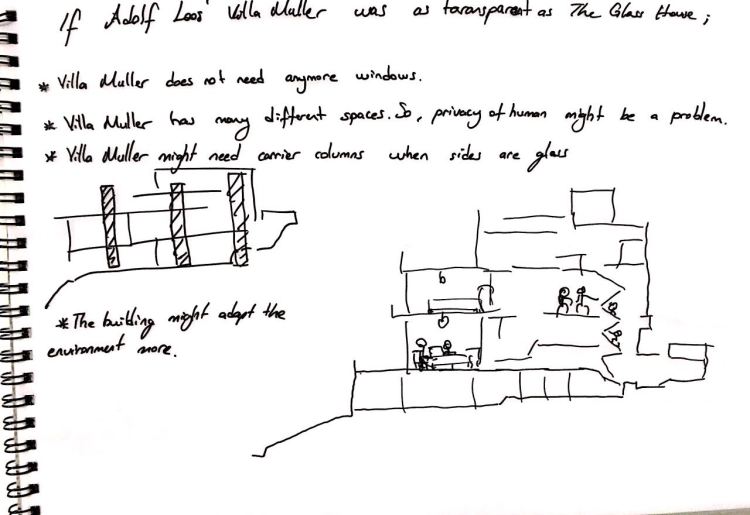 If Adolf Loos' Villa Muller was as taransparent as The Glass House;
* Villa Muller does not need anymore windows.
* Villa Muller has many different spaces. So, privacy of human might be a problem.
* Villa Muller might need carrier columns when sides are glass
* The building might adapt the
environment more.